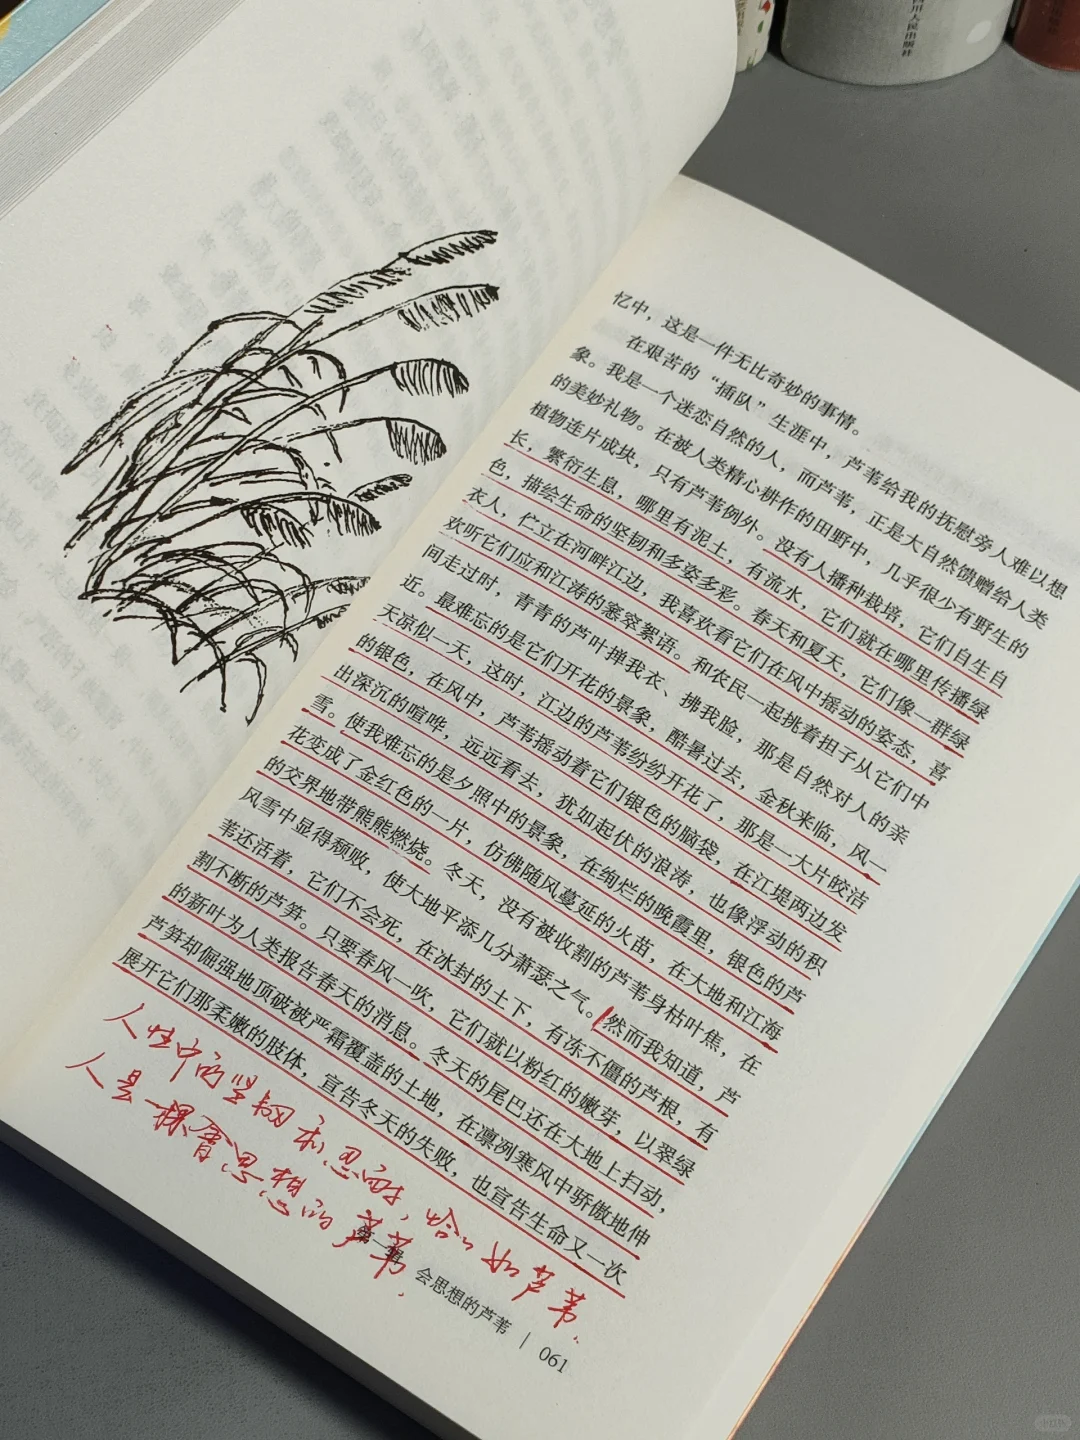 忆中，这是一件无比奇妙的事情。
在艰苦的“插队”生涯中，芦苇给我的抚慰旁人难以想
象。我是一个迷恋自然的人，而芦苇，正是大自然馈赠给人类
的美妙礼物。在被人类精心耕作的田野中，几乎很少有野生的
植物连片成块，只有芦苇例外。没有人播种栽培，它们自生自
长，繁衍生息，哪里有泥土，有流水，它们就在哪里传播绿
色，描绘生命的坚韧和多姿多彩。春天和夏天，它们像一群绿
衣人，伫立在河畔江边，我喜欢看它们在风中摇动的姿态，喜
欢听它们应和江涛的窸窣絮语。和农民一起挑着担子从它们中
间走过时，青青的芦叶掸我衣、拂我脸，那是自然对人的亲
近。最难忘的是它们开花的景象，酷暑过去，金秋来临，风一
天凉似一天，这时，江边的芦苇纷纷开花了，那是一大片皎洁
的银色，在风中，芦苇摇动着它们银色的脑袋，在江堤两边发
出深沉的喧哗，远远看去，犹如起伏的浪涛，也像浮动的积
雪。使我难忘的是夕照中的景象，在绚烂的晚霞里，银色的芦
花变成了金红色的一片，仿佛随风蔓延的火苗，在大地和江海
的交界地带熊熊燃烧。冬天，没有被收割的芦苇身枯叶焦，在
风雪中显得颓败，使大地平添几分萧瑟之气。然而我知道，芦
苇还活着，它们不会死，在冰封的土下，有冻不僵的芦根，有
割不断的芦笋。只要春风一吹，它们就以粉红的嫩芽，以翠绿
的新叶为人类报告春天的消息。冬天的尾巴还在大地上扫动，
芦笋却倔强地顶破被严霜覆盖的土地，在凛冽寒风中骄傲地伸
展开它们那柔嫩的肢体，宣告冬天的失败，也宣告生命又一次
人性中的坚韧和忍耐，恰如芦苇.
人是一棵会思想的芦苇.
会思想的芦苇 | 061
川人民出版社